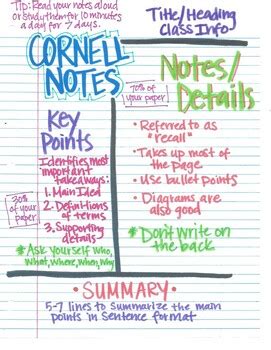 TIP: Read your notes aloud
or study them for 10 minutes
a day for 7 days.
Title/Heading
Class Info
CORNELL
NOTES
70% of
your paper
Notes/
Details
Key
Points
Identifies most
important
takeaways:
1. Main Idea
2. Definitions
of terms
3. Supporting
details
*Ask Yourself Who,
What, Where, When, Why
30%
of your
paper
• Referred to as
"recall"
• Takes up most of
the Page
• Use bullet points
• Diagrams are
also good
*Don't write on
the back
• SUMMARY •
5-7 lines to Summarize the main
points in Sentence format